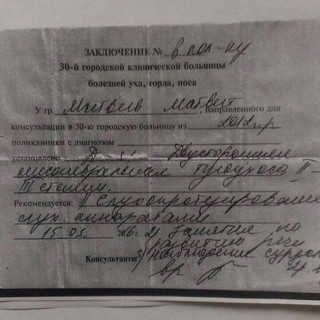 ЗАКЛЮЧЕНИЕ № в пол-ку
30-й городской клинической больницы
болезней уха, горла, носа
У гр. Матвей, направленного для
консультации в 30-ю городскую больницу из
поликлиники с диагнозом
установлено: Двусторонняя
тугоухость II-
III степени.
Рекомендуется: 1) Слухопротезирование
слух. аппаратами
15.03. 2) Занятие по
развитию речи
Консультант: 3) Наблюдение сурдол